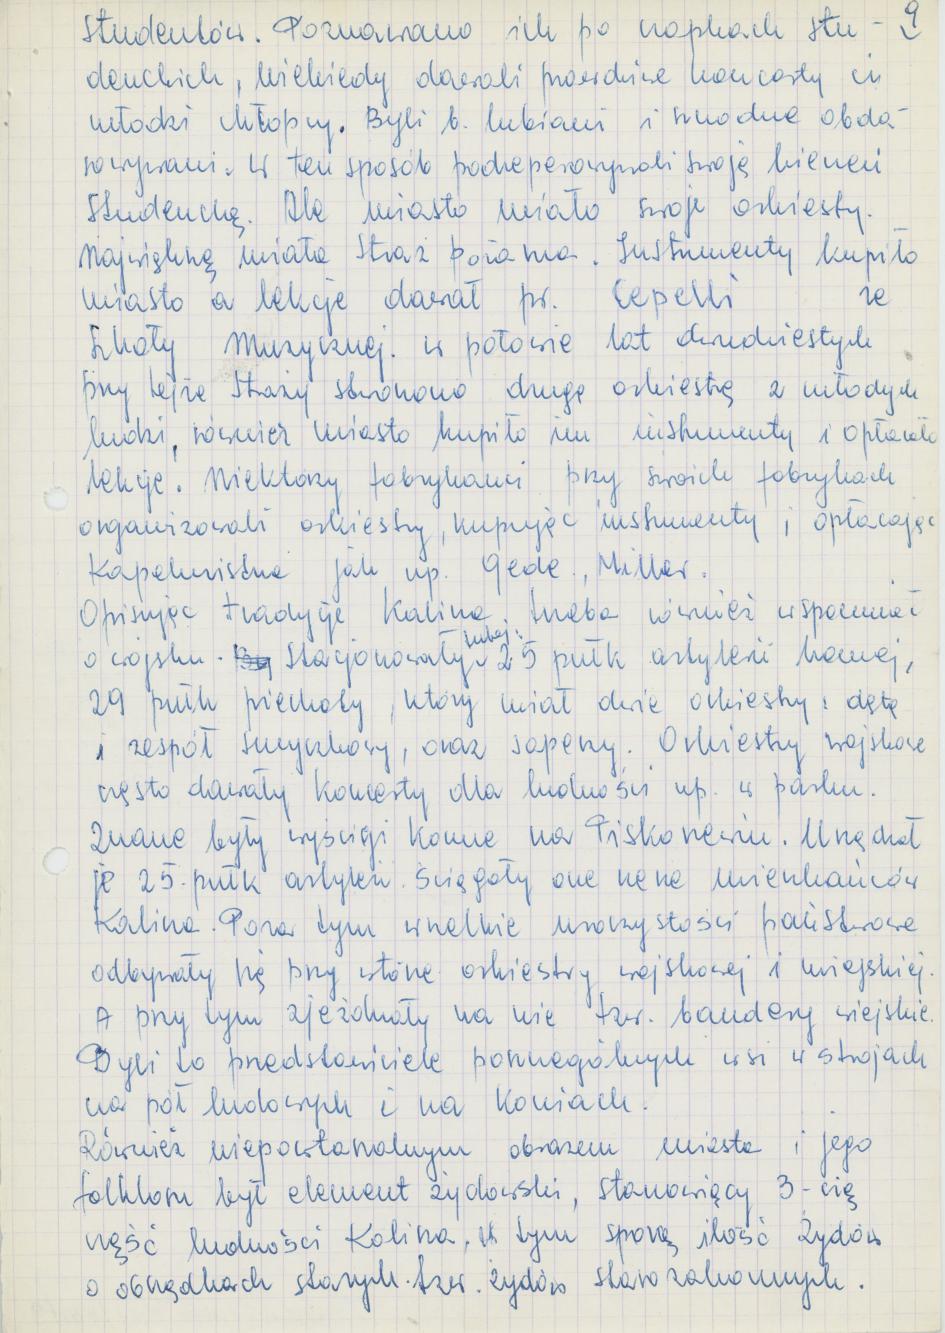 studentów. Poznawano ich po czapkach stu- 9
denckich, niekiedy dawali prawdziwe koncerty ci
młodzi chłopcy. Byli b. lubiani i szczodrze obda-
rowywani. w ten sposób podreperowywali swoją kieszeń
studencką. Ale miasto miało swoje orkiestry.
Największą miała Straż Pożarna. Instrumenty kupiło
miasto a lekcje dawał pr. Cepelli ze
Szkoły Muzycznej. w połowie lat dwudziestych
przy tejże straży stworzono drugą orkiestrę z młodych
ludzi, również miasto kupiło im instrumenty i opłacało
lekcje. Niektórzy fabrykanci przy swoich fabrykach
organizowali orkiestry, kupując instrumenty i opłacając
Kapelmistrza jak np. Gede, Miller.
Opisując tradycje Kalisza, trzeba również wspomnieć
o wojsku. Stacjonowały tutaj: 25 pułk artylerii konnej,
29 pułk piechoty, który miał dwie orkiestry: dętą
i zespół smyczkowy, oraz saperzy. Orkiestry wojskowe
często dawały koncerty dla ludności np. w parku.
Znane były wyścigi konne na Piskorzewiu. Urządzał
je 25. pułk artylerii. Ściągały one rzesze mieszkańców
Kalisza. Poza tym wszelkie uroczystości państwowe
odbywały się przy wtórze orkiestry wojskowej i miejskiej.
A przy tym zjeżdżały na nie tzw. bandery wiejskie.
Byli to przedstawiciele poszczególnych wsi w strojach
na pół ludowych i na koniach.
Również niepowtarzalnym obrazem miasta i jego
folkloru był element żydowski, stanowiący 3-cią
część ludności Kalisza, w tym sporą ilość Żydów
o obrządkach starych tzw. żydów starozakonnych.